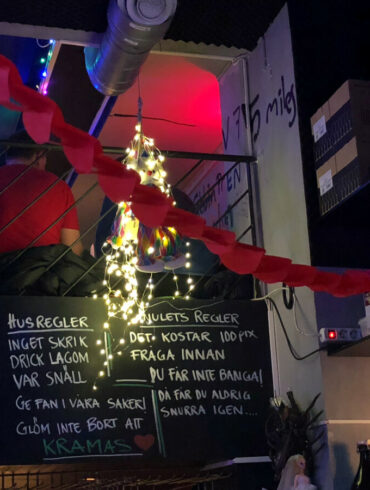 V 75 miles
HUSREGLER
INGET SKRIK
DRICK LAGOM
VAR SNÄLL
GE FAN I VÅRA SAKER!
GLÖM INTE BORT ATT
KRAMAS
HJULETS REGLER
DET KOSTAR 100 PIX
FRÅGA INNAN
DU FÅR INTE BANGA!
DÅ FÅR DU ALDRIG
SNURRA IGEN....